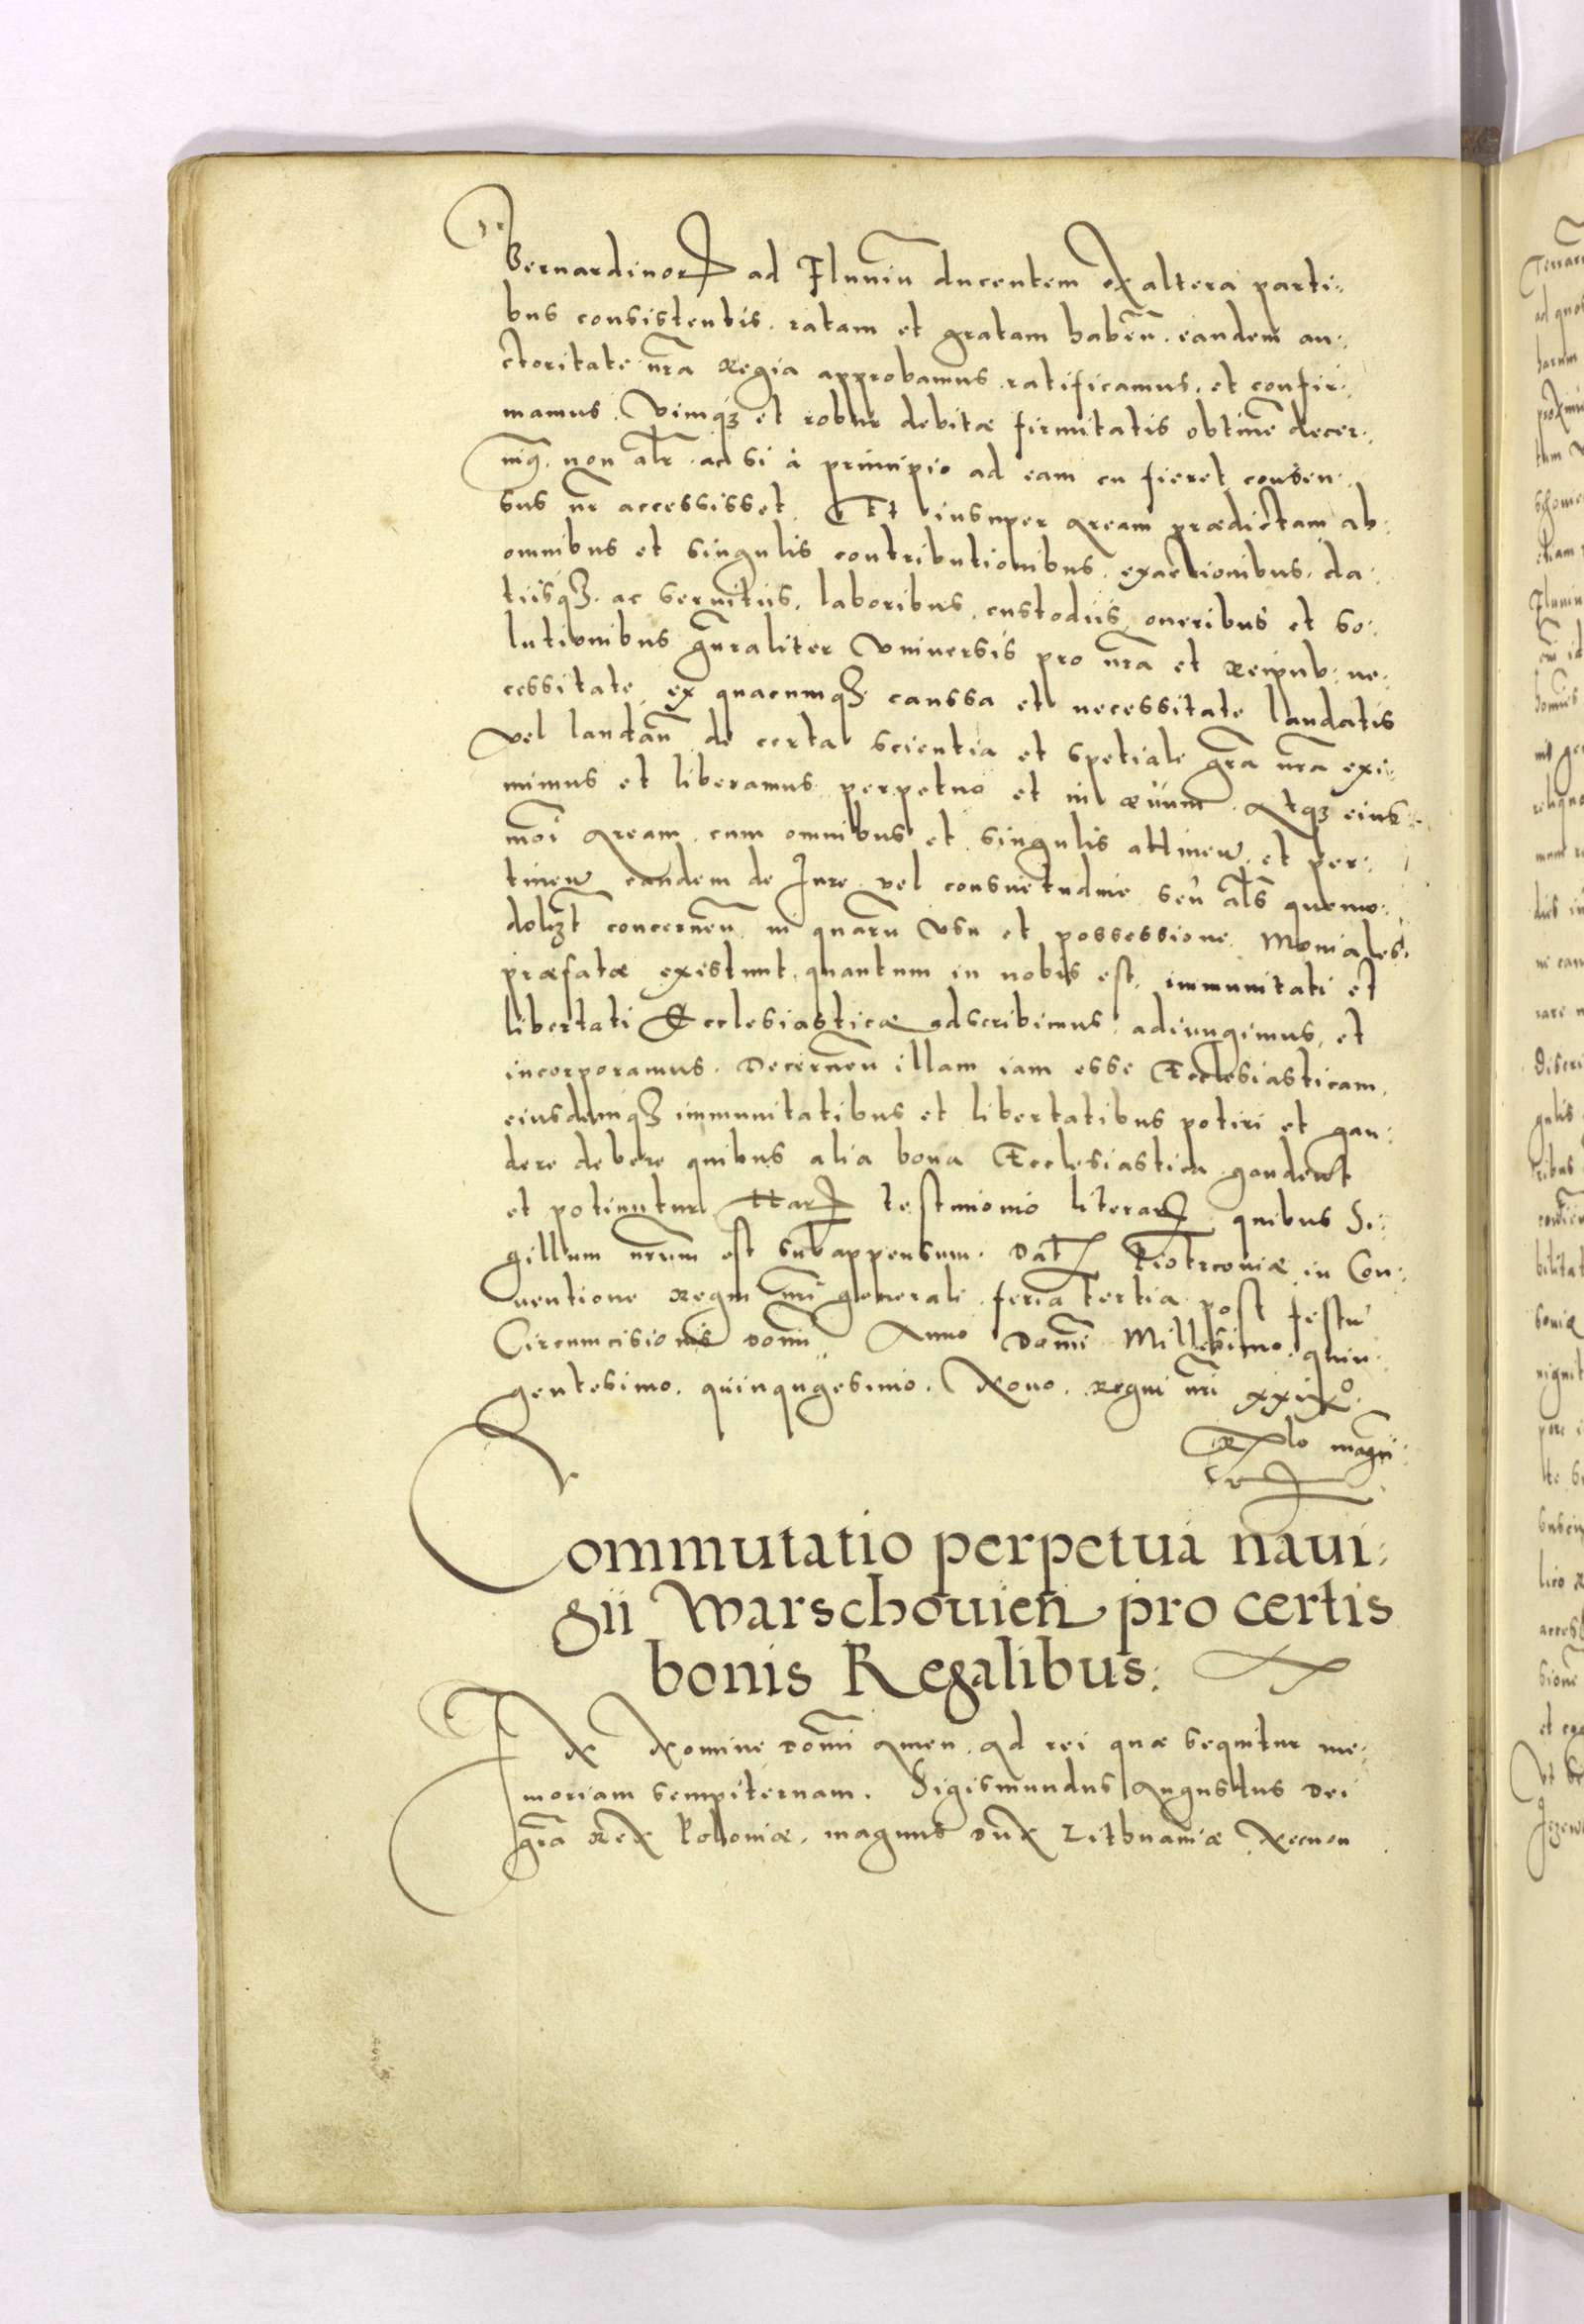 Bernardinorꝝ ad Fluuiū ducentem ex altera parti:
bus consistentis. ratam et gratam habeñ. eandem au:
ctoritate nr̃a Regia approbamus ratificamus, et confir:
mamus. Vimqꝫ et robur debitæ firmitatis obtinẽ decer:
nimꝰ. non alr̃. ac si à principio ad eam cũ fieret consen:
sus nr̃ accessisset. Et insuper aream prædictam ab
omnibus et singulis contributionibus, exactionibus, da:
tiisqꝫ. ac seruitiis, laboribus, custodiis, oneribus et so:
lutionibus gñraliter Vniuersis pro nr̃a et Reipub: ne:
cessitate, ex quacumqꝫ caussa et necessitate laudatis
vel laudañ de certa scientia et spetiali gr̃a nr̃a exi:
mimus et liberamus perpetuo et in æuum. Atqꝫ eius:
mõi aream. cum omnibus et singulis attineñ et per:
tineñ eandem de Iure vel consuetudine seu als̃ quomo:
dolꝫt concerneñ. in quarũ vsu et possessione Moniales
præfatæ existunt, quantum in nobis est, immunitati et
libertati Ecclesiasticæ adscribimus, adiungimus, et
incorporamus. Decerneñ illam iam esse Ecclesiasticam,
eiusdemqꝫ immunitatibus et libertatibus potiri et gau:
dere debere quibus alia bona Ecclesiastica gaudent
et potiuntur. Harꝝ testimonio literarꝝ quibus Si:
gillum nr̃um est subappensum. Dat̃ Piotrcouiæ in Con:
uentione Regni nr̃i generali feria tertia post festũ
Circumcisionis Domi Anno Domĩ Millesimo quin:
gentesimo. quinquagesimo. Nono. Regni nr̃i xxixº.
Commutatio perpetua naui:
gii Warschouieñ pro certis
bonis Regalibus:
IN Nomine Domĩ Amen. Ad rei quæ sequitur me:
moriam sempiternam. Sigismundus Augustus Dei
gr̃a Rex Poloniæ, magnus Dux Lithuaniæ. Necnon